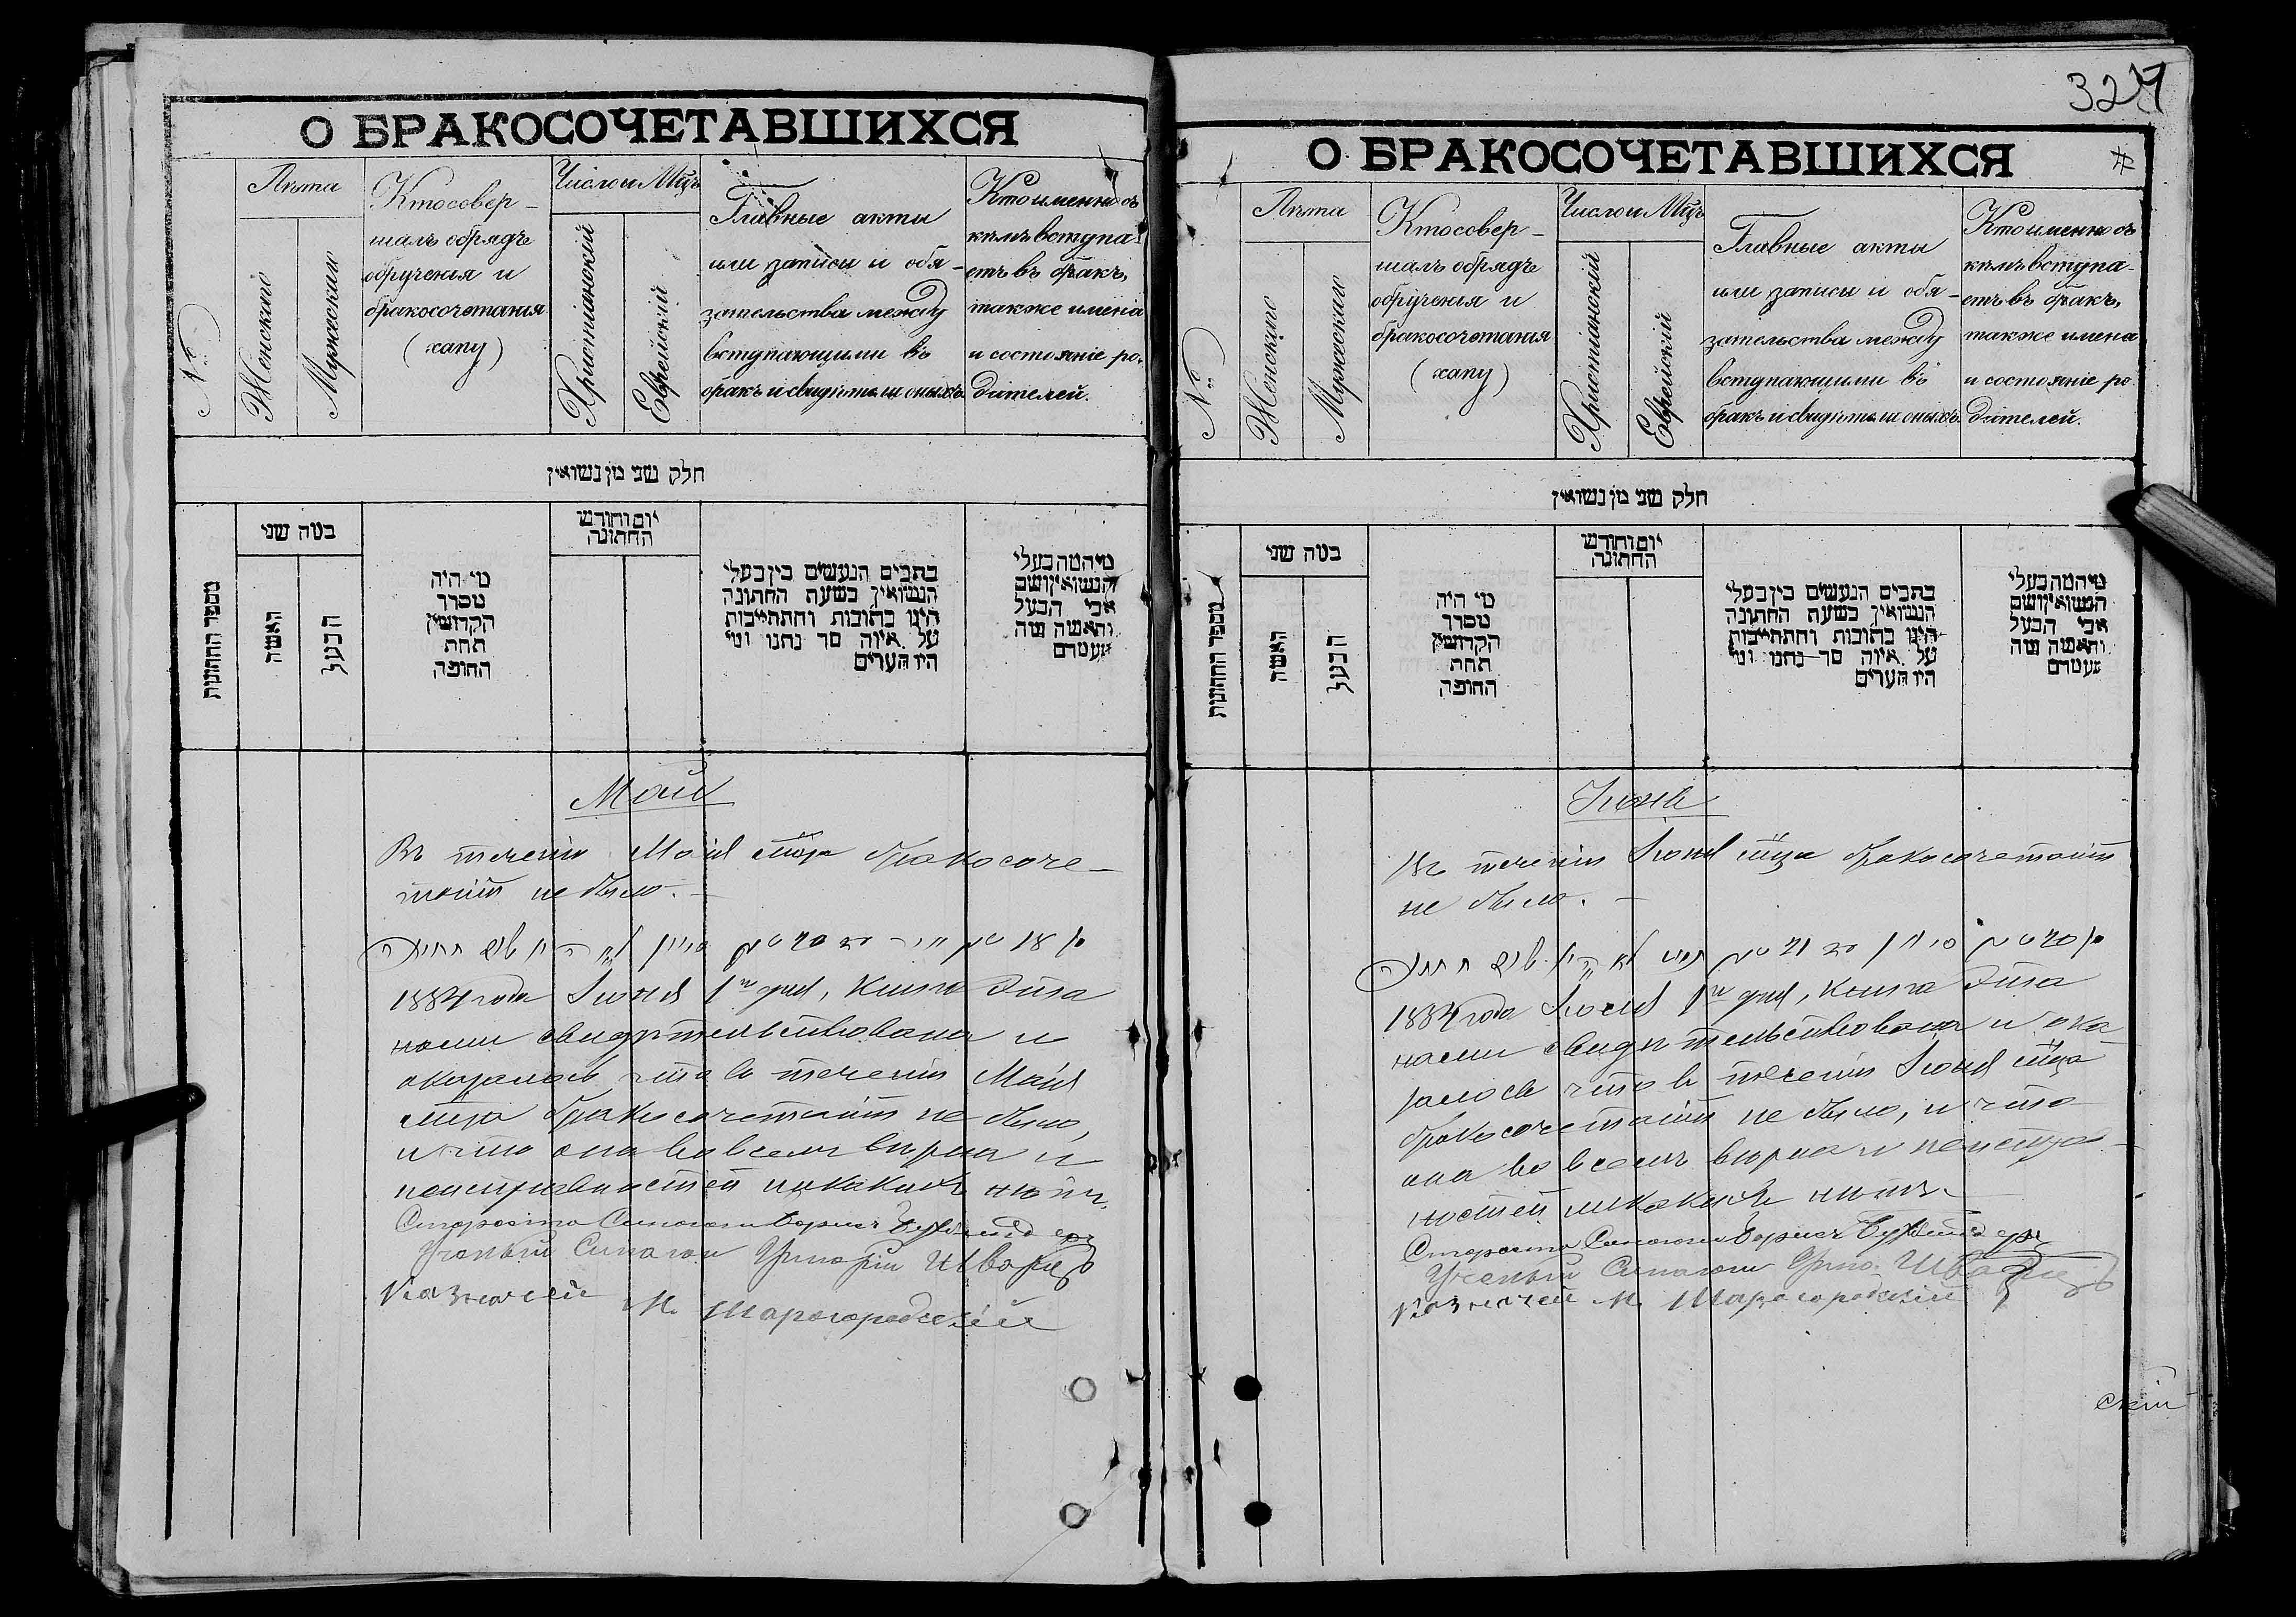 О БРАКОСОЧЕТАВШИХСЯ
№
Лѣта
Женскаго
Мужескаго
Кто совер-
шалъ обрядъ
обрученія и
бракосочетанія
(хапу)
Число и Мцъ
Христіанскій
Еврейскій
Главные акты
или записи и обя-
зательства между
вступающими въ
бракъ и свидѣтели оныхъ
Кто именно съ
кѣмъ вступа-
етъ въ бракъ,
также имена
и состояніе ро-
дителей.
חלק שני מן נשואין
מספר החתונות
כמה שני
האשה
הבעל
מי היה
מסדר
הקדושין
תחת
החופה
יום וחודש
החתונה
כתבים הנעשים בין בעלי
הנשואין בשעת החתונה
היינו כתובות והתחייבות
על איזה סך נתנו ומי
היו העדים
מי המה בעלי
הנשואין ושם
אבי הבעל
והאשה ומה
מעמדם
Май
Въ теченіи Маія мца бракосоче-
таній не было. —
1884 года Іюня 1го дня, книга эта
нами свидѣтельствована и
оказалось, что въ теченіи Маія
мца бракосочетаній не было,
и что она во всемъ вѣрна и
неисправностей никакихъ нѣтъ.
Староста Синагоги Борисъ
Ученый Синагоги Григорій Шварцъ
Казначей М. Шарогородскій
324
О БРАКОСОЧЕТАВШИХСЯ
№
Лѣта
Женскаго
Мужескаго
Кто совер-
шалъ обрядъ
обрученія и
бракосочетанія
(хапу)
Число и Мцъ
Христіанскій
Еврейскій
Главные акты
или записи и обя-
зательства между
вступающими въ
бракъ и свидѣтели оныхъ
Кто именно съ
кѣмъ вступа-
етъ въ бракъ,
также имена
и состояніе ро-
дителей.
חלק שני מן נשואין
מספר החתונות
כמה שני
האשה
הבעל
מי היה
מסדר
הקדושין
תחת
החופה
יום וחודש
החתונה
כתבים הנעשים בין בעלי
הנשואין בשעת החתונה
היינו כתובות והתחייבות
על איזה סך נתנו ומי
היו העדים
מי המה בעלי
הנשואין ושם
אבי הבעל
והאשה ומה
מעמדם
Іюнь
Въ теченіи Іюня мца бракосочетаній
не было. —
1884 года 1го дня, книга эта
нами свидѣтельствована и ока-
залось что въ теченіи Іюня мца
бракосочетаній не было, и что
она во всемъ вѣрна и неисправ-
ностей никакихъ нѣтъ.
Староста Синагоги Борисъ
Ученый Синагоги Григ. Шварцъ
Казначей М. Шарогородскій
скій